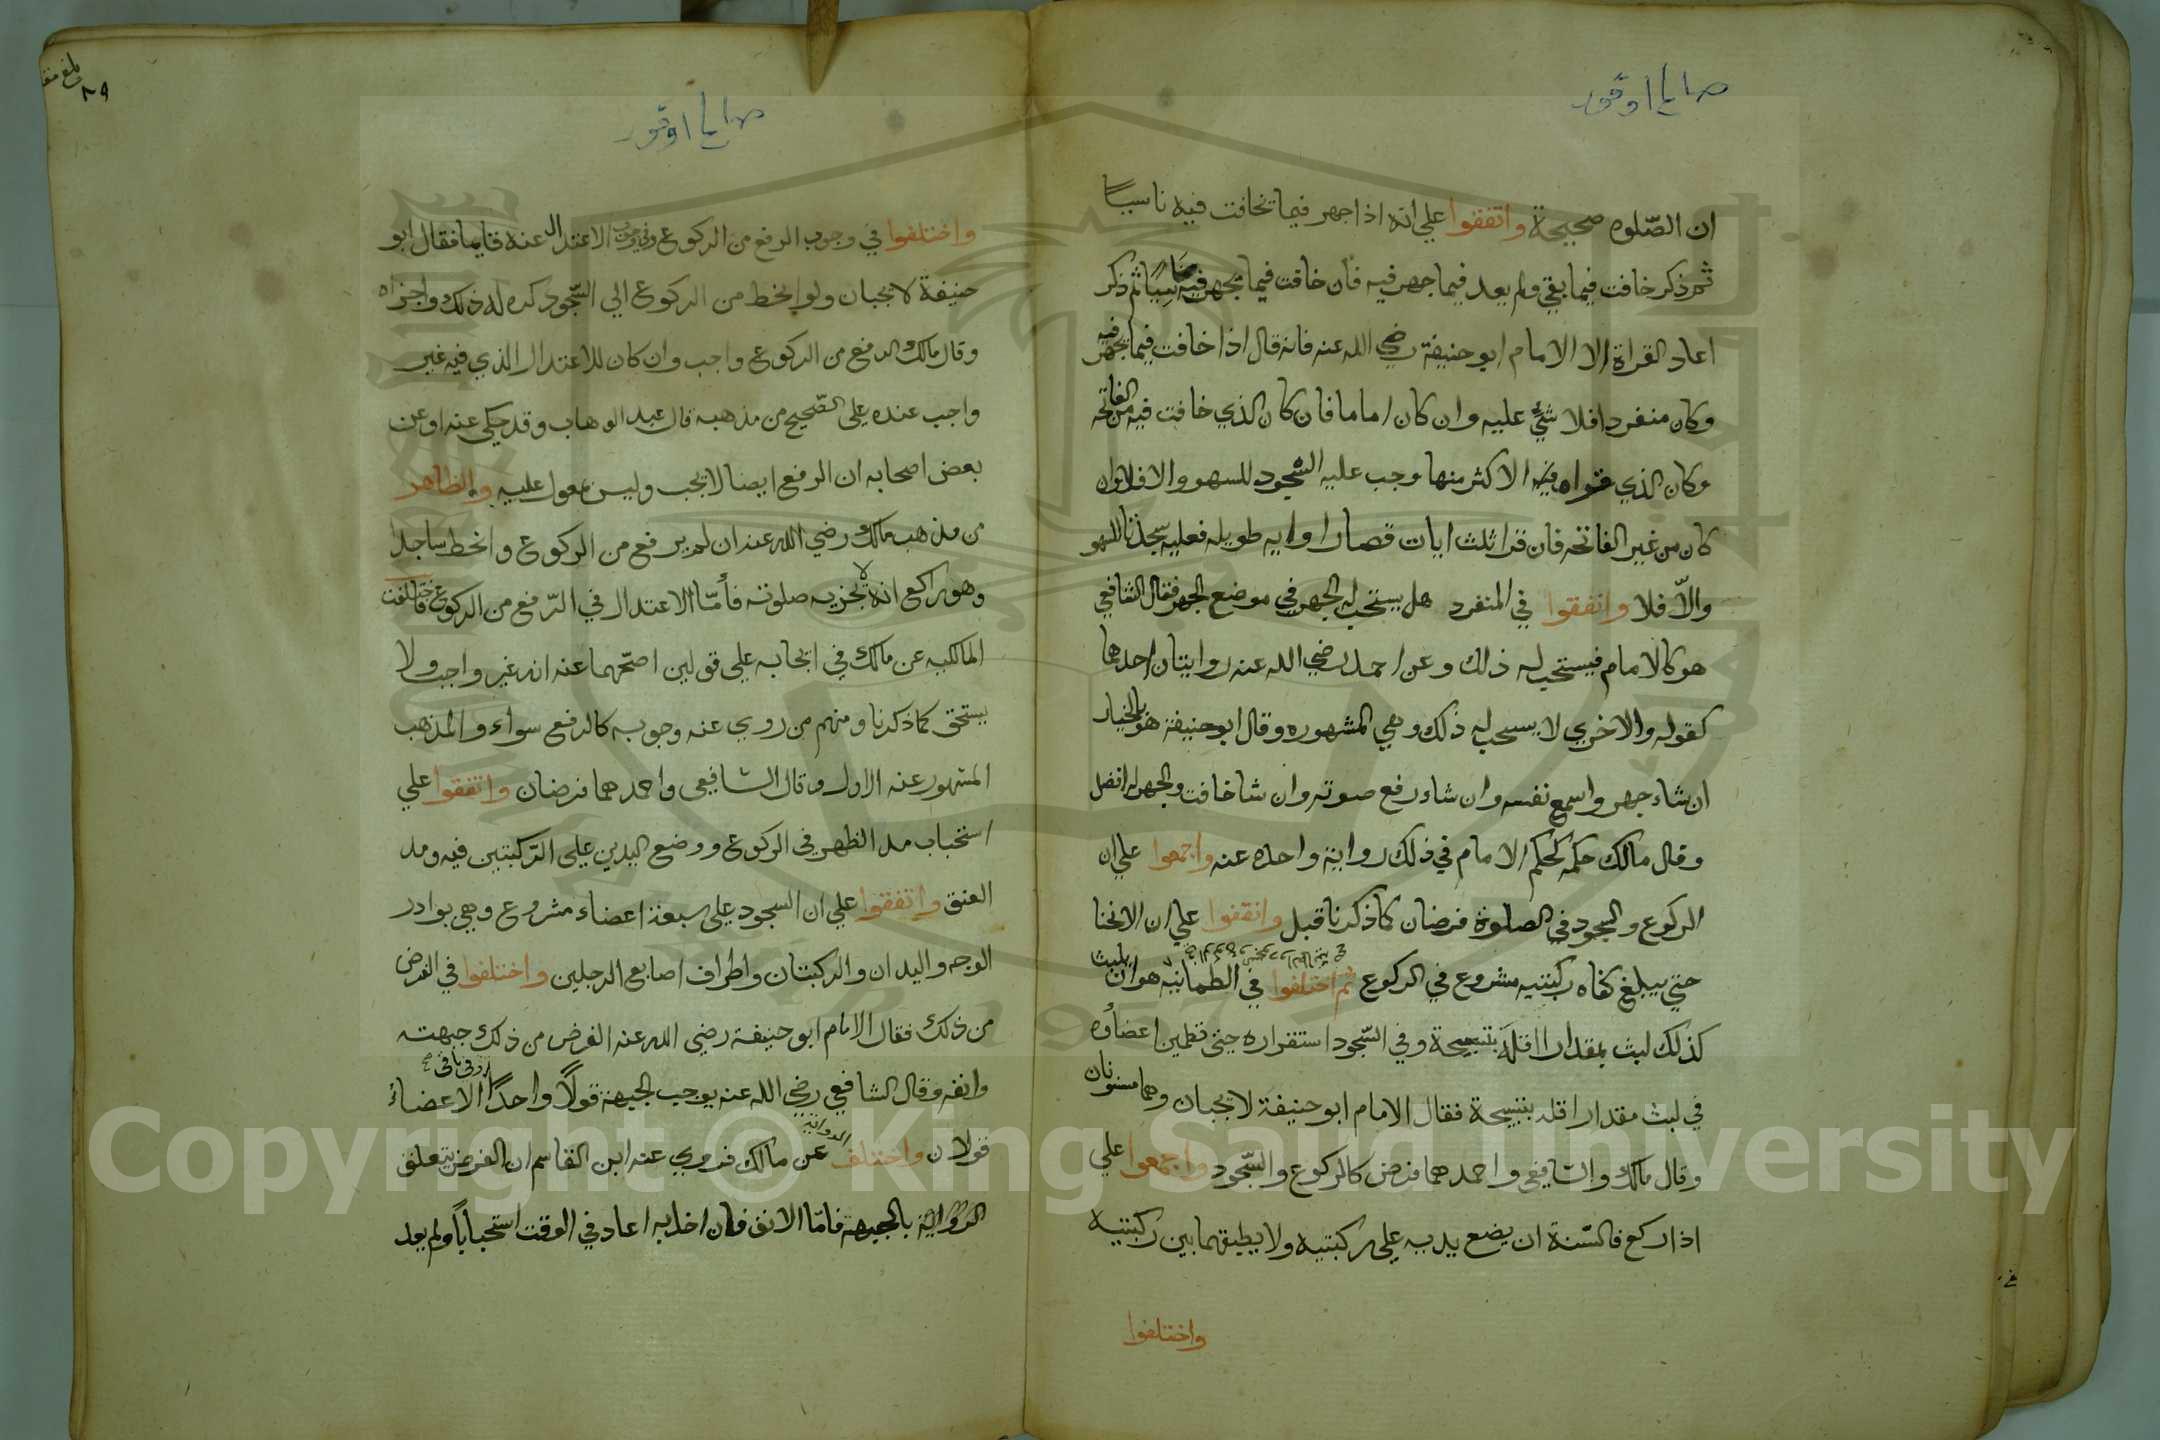 ان الصلوه صحيحة واتفقوا علي انه اذا جهر فيما تخافت فيه ناسيا
ثم ذكر خافت فيما بقي ولم يعد فيما جهر فيه فان خافت فيما تجهر فيه ناسيا ثم ذكر
اعاد القراة الا الامام ابو حنيفة رضي الله عنه فانه قال اذا خافت فيما تجهر فيه
وكان منفردا فلا شيء عليه وان كان اماما فان كان الذي خافت فيه من الفاتحه
وكان الذي قراه فيه الاكثر منها وجب عليه السجود للسهو والا فلا وان
كان من غير الفاتحه فان قرا ثلث ايات قصارا او ايه طويله فعليه سجدتا للسهو
والّا فلا واتفقوا في المنفرد هل يستحب له الجهر في موضع الجهر فقال الشافعي
هو كالامام فيستحب له ذلك وعن احمد رضي الله عنه روايتان احدهما
كقوله والاخري لا يستحب له ذلك وهي المشهوره وقال ابو حنيفة هو بالخيار
ان شاء جهر واسمع نفسه وان شاء رفع صوته وان شا خافت والجهر له افضل
وقال مالك حكمه كحكم الامام في ذلك رواية واحده عنه واجمعوا علي ان
الركوع والسجود في الصلوة فرضان كما ذكرنا قبل واتفقوا علي ان الانحنا
حتي يبلغ كفاه ركبتيه مشروع في الركوع ثم اختلفوا في الطمانية هو ان يلبث
كذلك لبث بمقدار اقله بتسبيحة وفي السجود استقراره حتى تطمين اعضاؤه
في لبث مقدار اقله بتسبيحة فقال الامام ابو حنيفة لا تجبان وهما مسنونان
وقال مالك والشافعي واحمد هما فرض كالركوع والسجود واجمعوا علي
اذا ركع فالسنة ان يضع يديه علي ركبتيه ولا يطبقهما بين ركبتيه
واختلفوا
واختلفوا في وجوب الرفع من الركوع وفي وجوب الاعتدال عنه قايما فقال ابو
حنيفة لا تجبان ولو انحط من الركوع الي السجود كره له ذلك واجزاه
وقال مالك الرفع من الركوع واجب وان كان للاعتدال الذي فيه غير
واجب عنده علي الصحيح من مذهبه قال عبد الوهاب وقد حكي عنه او عن
بعض اصحابه ان الرفع ايضا لا تجب وليس بمعول عليه والظاهر
من مذهب مالك رضي الله عنه ان لم يرفع من الركوع وانحط ساجدا
وهو راكع انه لا تجزيه صلوته فأمّا الاعتدال في الرفع من الركوع فاختلفت
المالكيه عن مالك في ايجابه علي قولين اصحهما عنه انه غير واجب ولا
يستحق كما ذكرنا ومنهم من روي عنه وجوبه كالرفع سواء والمذهب
المشهور عنه الاول وقال الشافعي واحمد هما فرضان واتفقوا علي
استحباب مد الظهر في الركوع ووضع اليدين علي الركبتين فيه ومد
العنق واتفقوا علي ان السجود علي سبعة اعضاء مشروع وهي بوادر
الوجه واليدان والركبتان واطراف اصابع الرجلين واختلفوا في الفرض
من ذلك فقال الامام ابو حنيفة رضي الله عنه الفرض من ذلك جبهته
وانفه وقال الشافعي رضي الله عنه يوجب الجبهة قولًا واحدًا وفي باقي الاعضاء
قولان واختلف الرواية عن مالك فروي عنه ابن القاسم ان الفرض يتعلق
الرواية بالجبهة فامّا الانف فان اخل به اعاد في الوقت استحبابًا ولم يعد
Copyright © King Saud University